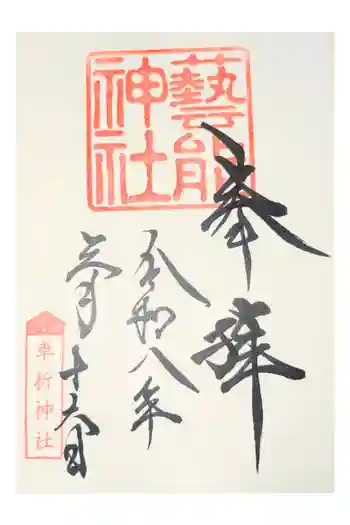 藝能
神社
奉拝
令和八年
三月
十六日
車折神社